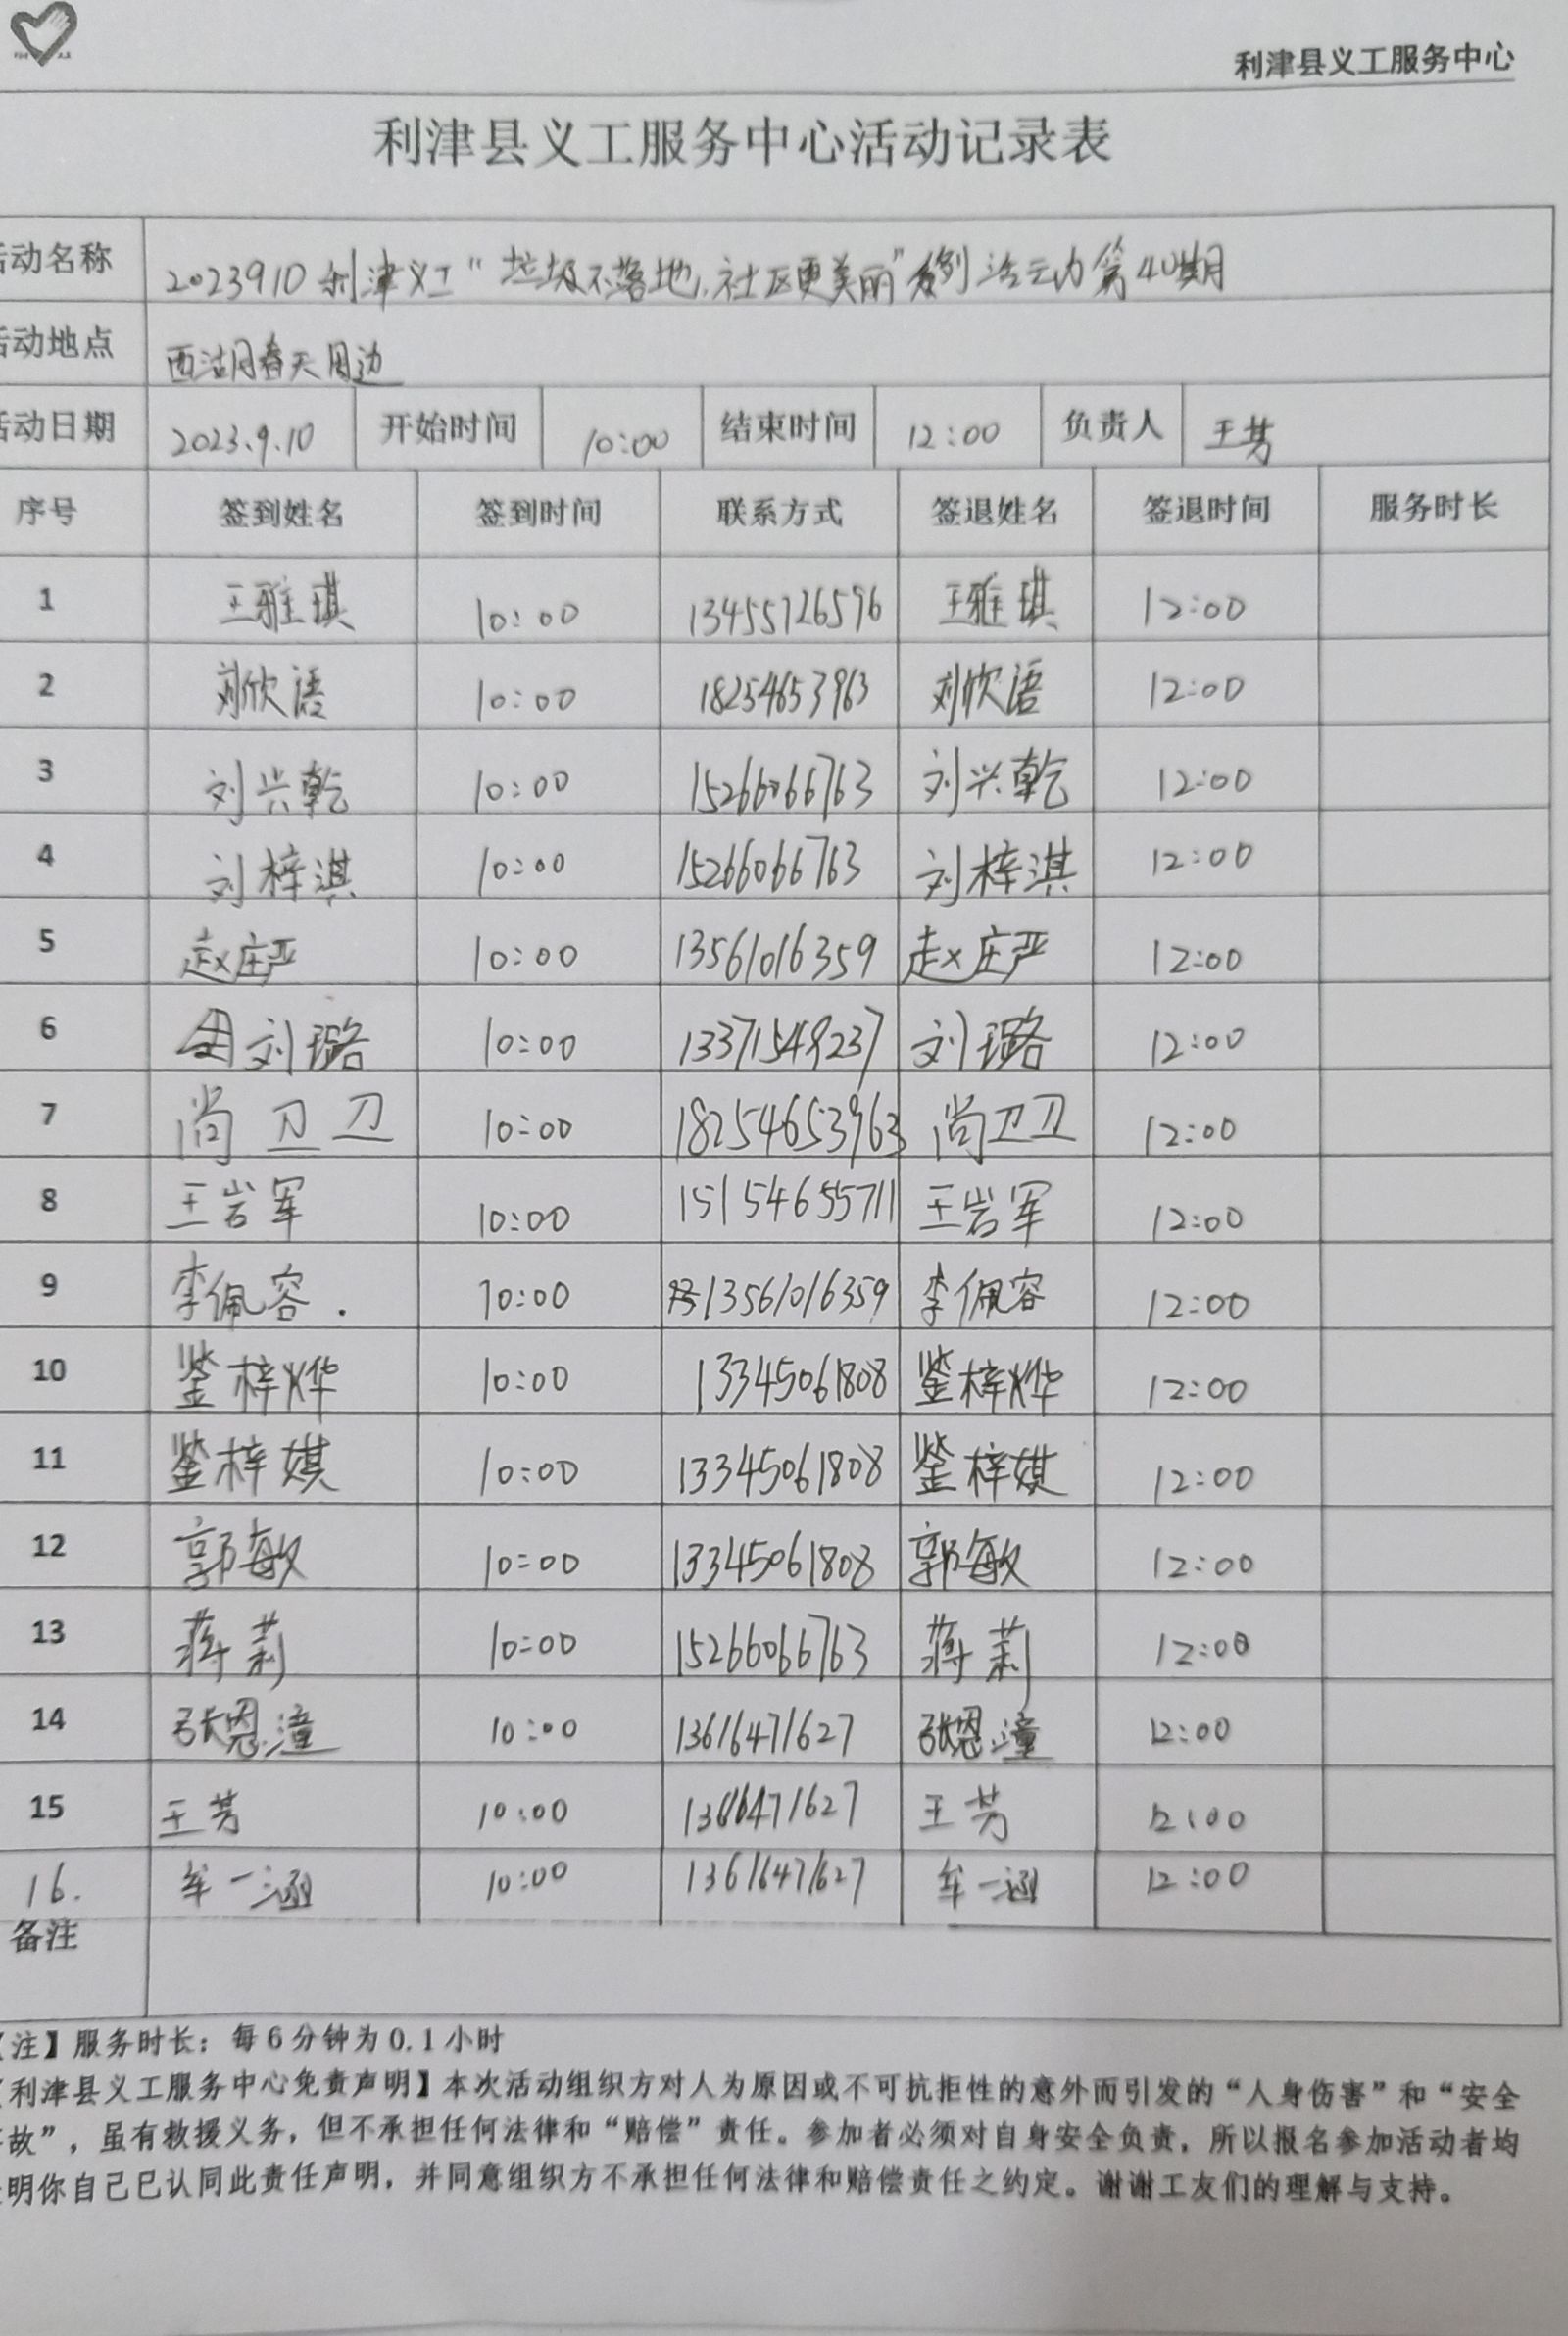 利津县义工服务中心
利津县义工服务中心活动记录表
活动名称 20230910 利津义工“垃圾不落地,社区更美丽”系列活动第40期
活动地点 西湖春天周边
活动日期 2023.9.10 开始时间 10:00 结束时间 12:00 负责人 王芳
序号 签到姓名 签到时间 联系方式 签退姓名 签退时间 服务时长
1 王雅琪 10:00 13455726596 王雅琪 12:00
2 刘欣语 10:00 18254653963 刘欣语 12:00
3 刘兴乾 10:00 15266066763 刘兴乾 12:00
4 刘梓淇 10:00 15266066763 刘梓淇 12:00
5 赵庄严 10:00 13561016359 赵庄严 12:00
6 刘璐 10:00 13371548237 刘璐 12:00
7 尚卫卫 10:00 18254653963 尚卫卫 12:00
8 王岩军 10:00 15154655711 王岩军 12:00
9 李佩容. 10:00 13561016359 李佩容 12:00
10 綦梓烨 10:00 13345061808 綦梓烨 12:00
11 綦梓娸 10:00 13345061808 綦梓娸 12:00
12 郭敏 10:00 13345061808 郭敏 12:00
13 蒋莉 10:00 15266066763 蒋莉 12:00
14 张恩潼 10:00 13616471627 张恩潼 12:00
15 王芳 10:00 13616471627 王芳 12:00
16. 牟一涵 10:00 13616471627 牟一涵 12:00
备注
【注】服务时长：每6分钟为0.1小时
【利津县义工服务中心免责声明】本次活动组织方对人为原因或不可抗拒性的意外而引发的“人身伤害”和“安全
事故”，虽有救援义务，但不承担任何法律和“赔偿”责任。参加者必须对自身安全负责，所以报名参加活动者均
明你自己已认同此责任声明，并同意组织方不承担任何法律和赔偿责任之约定。谢谢工友们的理解与支持。